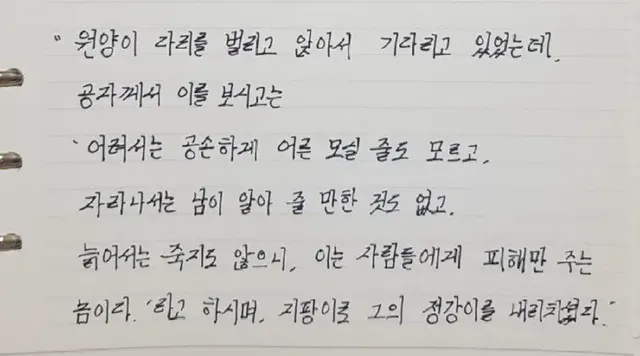 " 원양이 다리를 벌리고 앉아서 기다리고 있었는데,
공자께서 이를 보시고는
'어려서는 공손하게 어른 모실 줄도 모르고,
자라나서는 남이 알아 줄 만한 것도 없고,
늙어서는 죽지도 않으니, 이는 사람들에게 피해만 주는
놈이다.'라고 하시며, 지팡이로 그의 정강이를 내리치셨다."